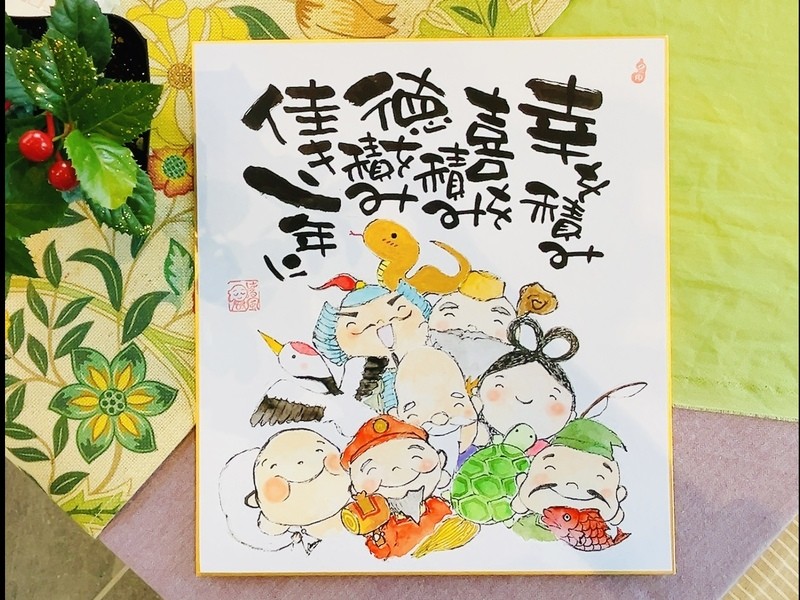 幸を積み
喜を積み
徳を積み
佳き一年に